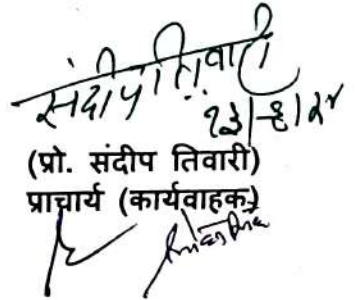 संदीप तिवारी
१३/६/२४
(प्रो. संदीप तिवारी)
प्राचार्य (कार्यवाहक)